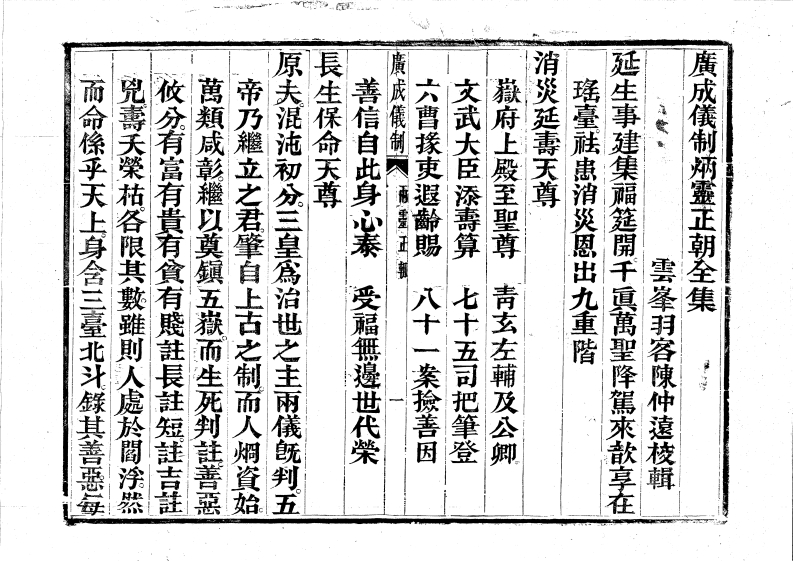 廣成儀制炳靈正朝全集
雲峯羽客陳仲遠校輯
延生事建集福筵開千眞萬聖降駕來歆享在
瑤臺祛患消災恩出九重階
消災延壽天尊
嶽府上殿至聖尊　靑玄左輔及公卿
文武大臣添壽算　七十五司把筆登
六曹掾吏遐齡賜　八十一案撿善因
廣成儀制　靈正朝　一
善信自此身心泰　受福無邊世代榮
長生保命天尊
原夫混沌初分。三皇爲治世之主兩儀旣判。五
帝乃繼立之君。肇自上古之制。而人烱資始。
萬類咸彰。繼以奠鎭五嶽。而生死判註。善惡
攸分。有富有貴有貧有賤。註長註短。註吉註
兇。壽夭榮枯。各限其數。雖則人處於閻浮。然
而命係乎天上。身含三臺北斗。錄其善惡。每